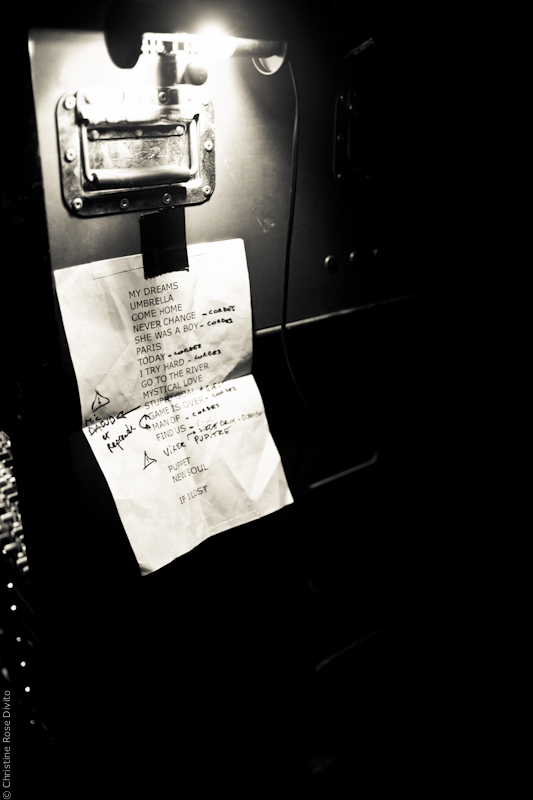 MY DREAMS
UMBRELLA
COME HOME
NEVER CHANGE - CORDES
SHE WAS A BOY - CORDES
PARIS
TODAY - CORDES
I TRY HARD - CORDES
GO TO THE RIVER
MYSTICAL LOVE
GOAL
GAME IS OVER - CORDES
MAN OF - CORDES
FIND US -
VIRER
PUPITRE
PUPPET
NEW SOUL
IF I LOST
© Christine Rose Divito